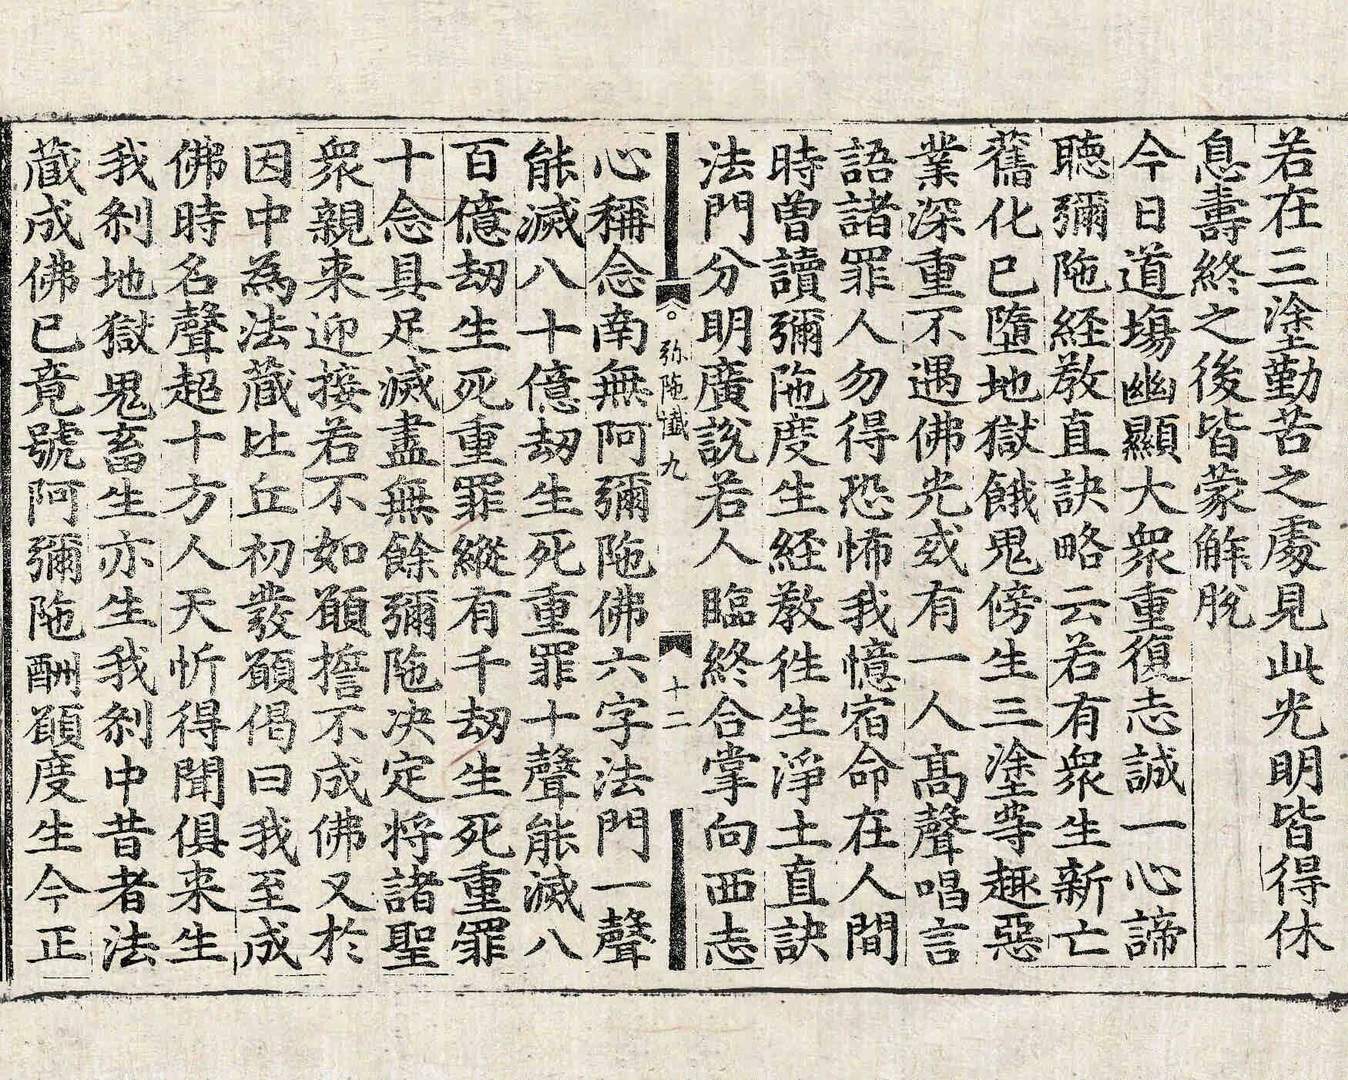 若在三塗勤苦之處見此光明皆得休
息壽終之後皆蒙解脫
今日道場幽顯大衆重復志誠一心諦
聽彌陁経教直訣略云若有衆生新亡
舊化已墮地獄餓鬼傍生三塗等趣惡
業深重不遇佛光或有一人髙聲唱言
語諸罪人勿得恐怖我憶宿命在人間
時曽讀彌陁度生経教徃生淨土直訣
法門分明廣說若人臨終合掌向西志
弥陁懺九
十二
心稱念南無阿彌陁佛六字法門一聲
能滅八十億劫生死重罪十聲能滅八
百億劫生死重罪縱有千劫生死重罪
十念具足滅盡無餘彌陁决定将諸聖
衆親来迎接若不如願誓不成佛又於
因中為法藏比丘初發願偈曰我至成
佛時名聲超十方人天忻得聞俱来生
我刹地獄鬼畜生亦生我刹中昔者法
藏成佛已竟號阿彌陁酬願度生今正